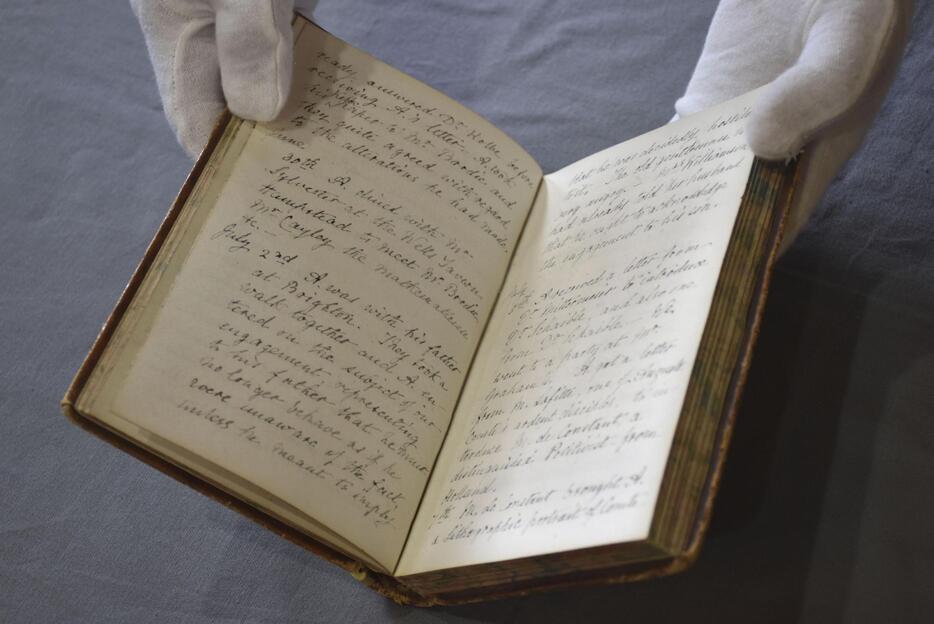 ready, answered Dr. Kolbe before
receiving A.'s letter. A. took
his paper to Mr. Brodie, and
they quite agreed with regard
to the alterations he had made.
June
30th A. dined with Mr.
Sylvester at the Wells Tavern
Hampstead to meet Mr. Brodie
Mr. Cayley the Mathematician
&c. —
July 2nd A. was with his father
at Brighton. They took a
walk together and A. en-
tered on the subject of our
engagement representing
to his father that he must
no longer behave as if he
were unaware of the fact,
unless he meant to imply
that he was decidedly hostile
to it. The old gentleman was
very angry. Mrs. Williamson
had already told her husband
that he ought to acknowledge
the engagement to his son.
July
5th A. received a letter from
Dr. to introduce
Dr. Schaible and also one
from Dr. Schaible. We
went to a party at Mr.
Graham's. A. got a letter
from M. Lafitte, one of Auguste
Comte's ardent disciples, to in-
troduce M. de Constant, a
distinguished Positivist from
Holland.
7th M. de Constant brought A.
a lithographic portrait of Comte